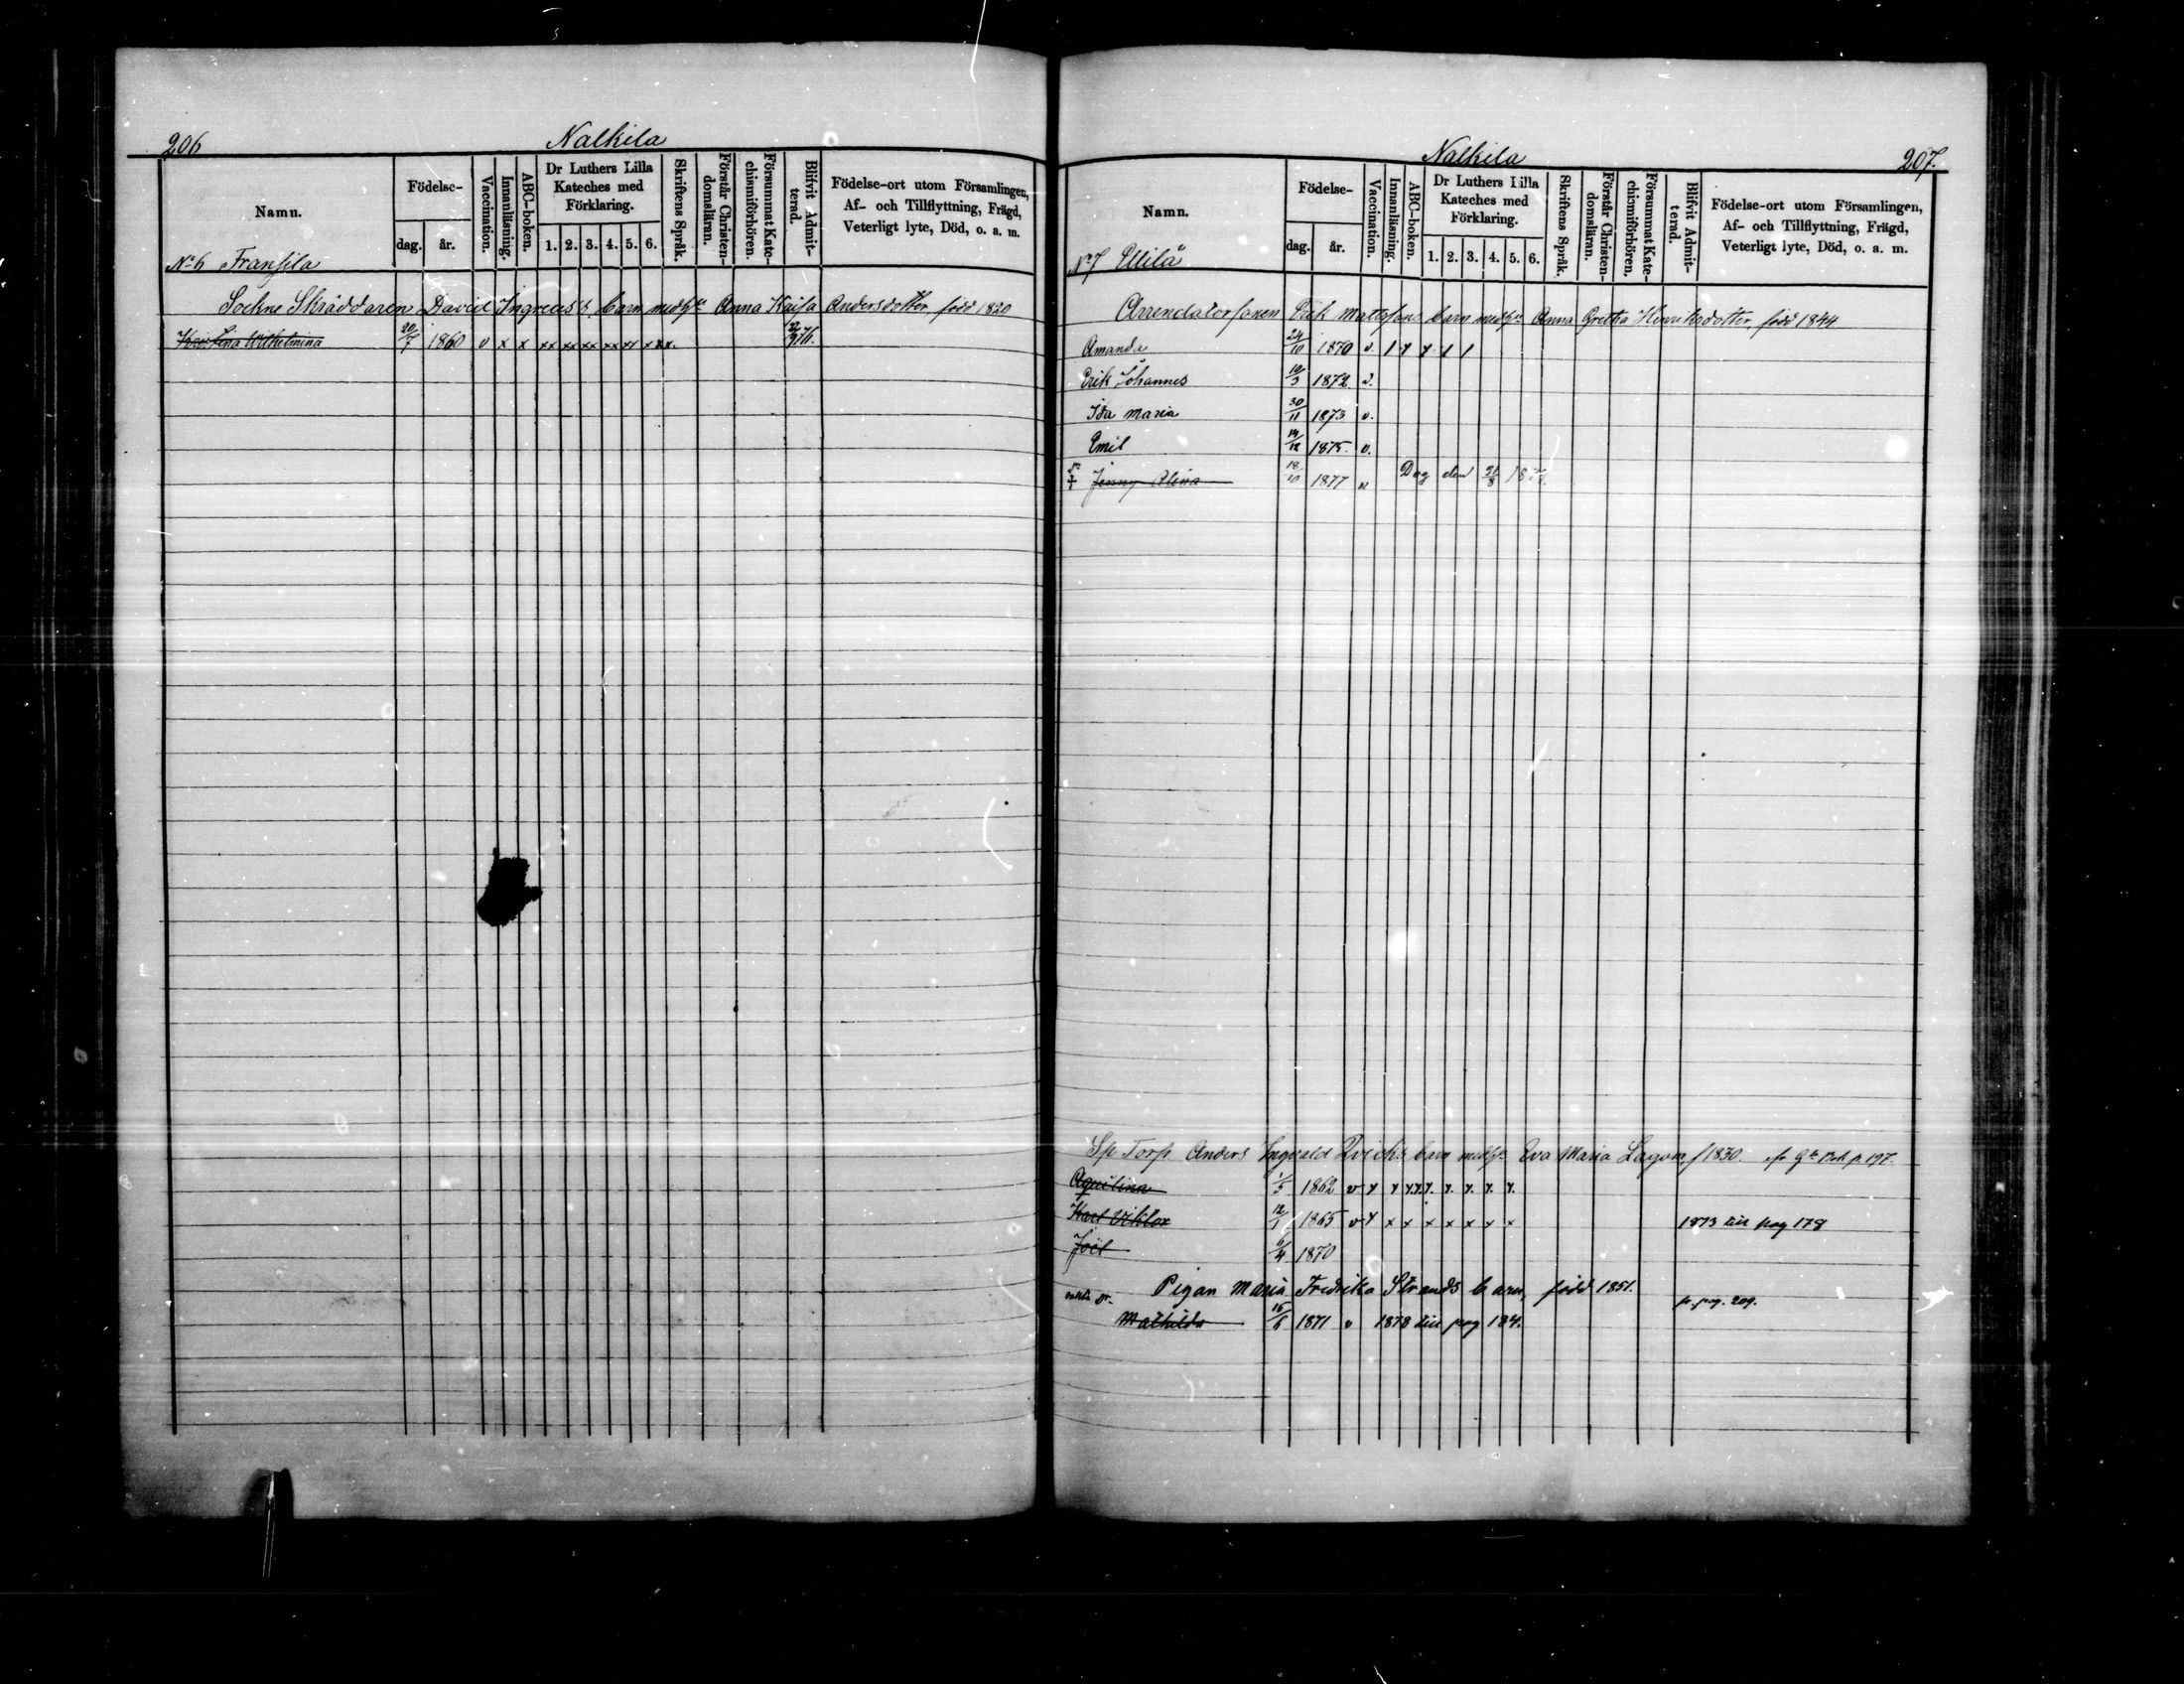 206
Nalkila
Namn.
Födelse-
dag.
år.
Vaccination.
Innanläsning.
ABC-boken.
Dr Luthers Lilla
Kateches med
Förklaring.
1. 2. 3. 4. 5. 6.
Skriftens Språk.
Förstår Christen-
domsläran.
Försummat Kate-
chismiförhören.
Blifvit Admit-
terad.
Födelse-ort utom Församlingen,
Af- och Tillflyttning, Frägd,
Veterligt lyte, Död, o. a. m.
No 6 Fransila
Sockne Skräddaren David Ingreus's barn med h. Anna Kaisa Andersdotter, född 1820
Wilhelmina 20/7 1860 v x x xx xx xx xx xx xx
Nalkila
207.
Namn.
Födelse-
dag.
år.
Vaccination.
Innanläsning.
ABC-boken.
Dr Luthers Lilla
Kateches med
Förklaring.
1. 2. 3. 4. 5. 6.
Skriftens Språk.
Förstår Christen-
domsläran.
Försummat Kate-
chismiförhören.
Blifvit Admit-
terad.
Födelse-ort utom Församlingen,
Af- och Tillflyttning, Frägd,
Veterligt lyte, Död, o. a. m.
No 7 Ullila
Arrendatorsonen Erik Mattssons barn med h. Anna Gretha Henriksdotter, född 1844
Amanda 24/10 1870 v.
Erik Johannes 1872 v.
Ida Maria 30/11 1873 v.
Emil 14/12 1875. v.
Jenny Alina 18/10 1877 Dog den
Sp Torp Anders Ingvald Qvicks barn med h. Eva Maria f 1830. p 197.
Aquilina 1/5 1862 v
Karl Viktor 12/1 1865 v x x x x x x x 1873 till pag 178
Joel 6/4 1870
Pigan Maria Fredrika Strands barn, född 1851.
fr. pag. 209.
Mathilda 1871 v 1878 till pag 184.